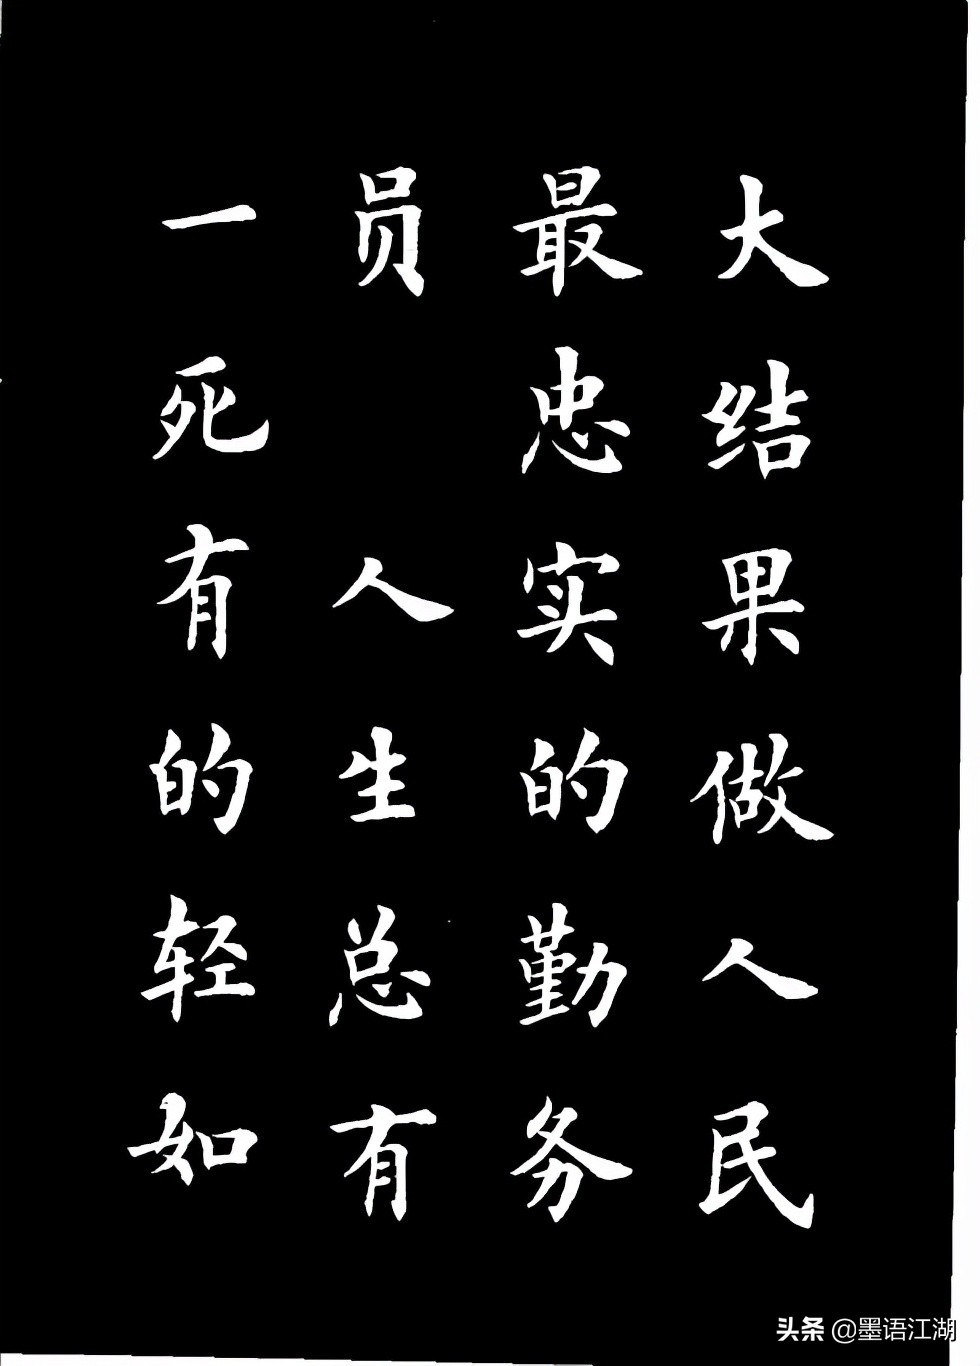 大结果做人民
最忠实的勤务
员 人生总有
一死有的轻如
头条 @墨语江湖